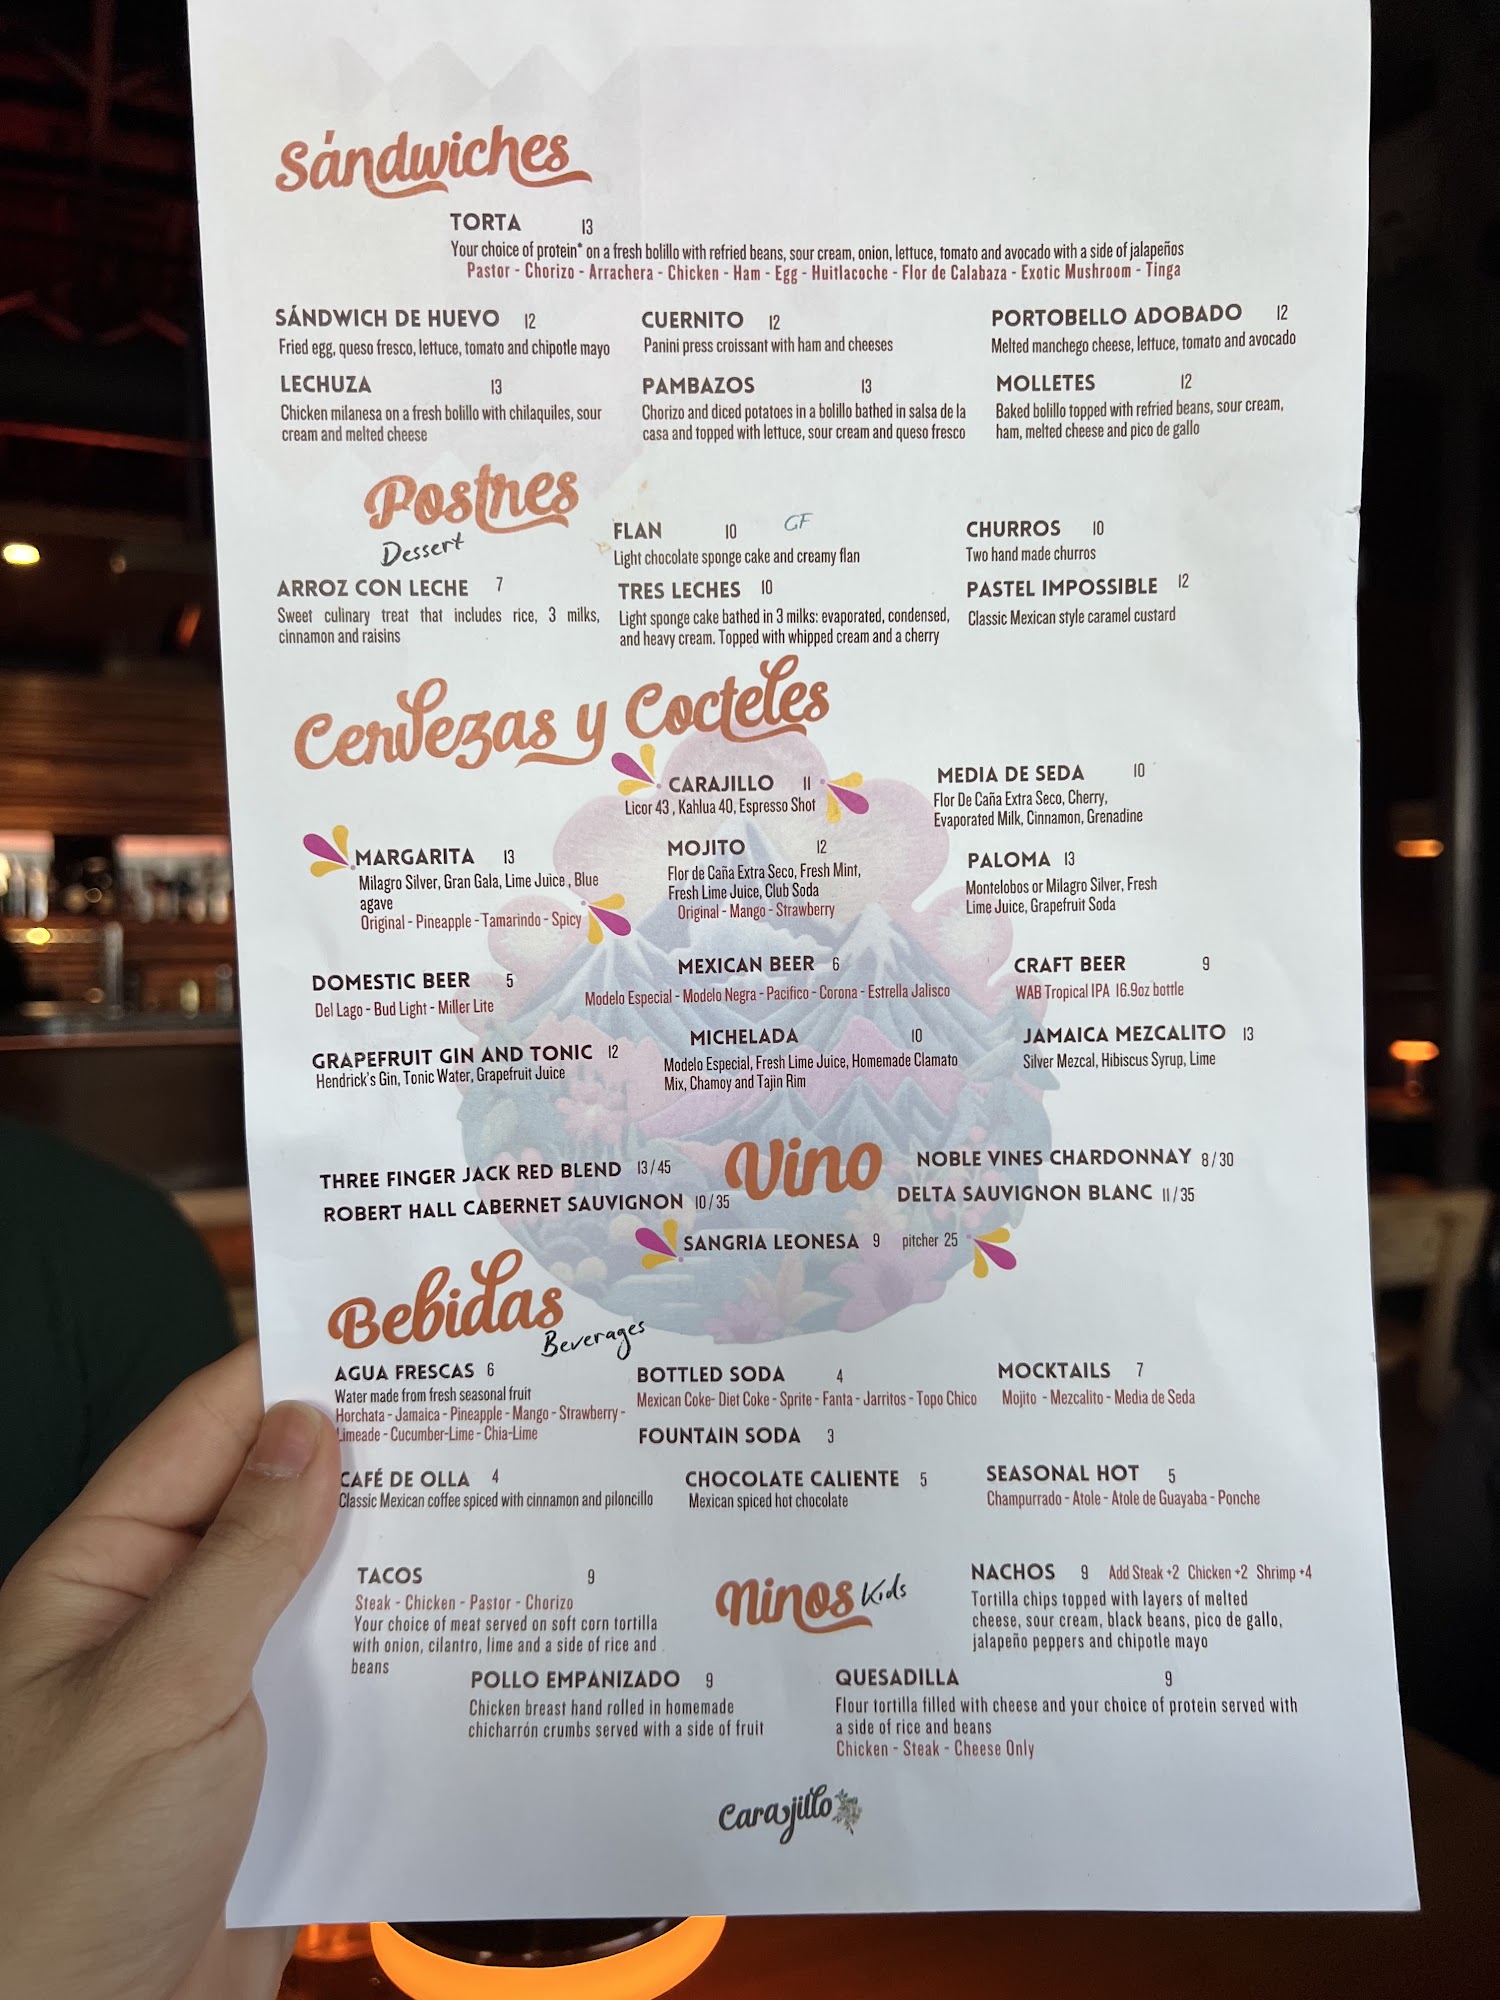 Sándwiches
TORTA 13
Your choice of protein* on a fresh bolillo with refried beans, sour cream, onion, lettuce, tomato and avocado with a side of jalapeños
Pastor - Chorizo - Arrachera - Chicken - Ham - Egg - Huitlacoche - Flor de Calabaza - Exotic Mushroom - Tinga
SÁNDWICH DE HUEVO 12
Fried egg, queso fresco, lettuce, tomato and chipotle mayo
CUERNITO 12
Panini press croissant with ham and cheeses
PORTOBELLO ADOBADO 12
Melted manchego cheese, lettuce, tomato and avocado
LECHUZA 13
Chicken milanesa on a fresh bolillo with chilaquiles, sour
cream and melted cheese
PAMBAZOS 13
Chorizo and diced potatoes in a bolillo bathed in salsa de la
casa and topped with lettuce, sour cream and queso fresco
MOLLETES 12
Baked bolillo topped with refried beans, sour cream,
ham, melted cheese and pico de gallo
Postres
Dessert
FLAN 10 GF
Light chocolate sponge cake and creamy flan
CHURROS 10
Two hand made churros
ARROZ CON LECHE 7
Sweet culinary treat that includes rice, 3 milks,
cinnamon and raisins
TRES LECHES 10
Light sponge cake bathed in 3 milks: evaporated, condensed,
and heavy cream. Topped with whipped cream and a cherry
PASTEL IMPOSSIBLE 12
Classic Mexican style caramel custard
Cervezas y Cocteles
CARAJILLO 11
Licor 43 , Kahlua 40, Espresso Shot
MEDIA DE SEDA 10
Flor De Caña Extra Seco, Cherry,
Evaporated Milk, Cinnamon, Grenadine
MARGARITA 13
Milagro Silver, Gran Gala, Lime Juice , Blue
agave
Original - Pineapple - Tamarindo - Spicy
MOJITO 12
Flor de Caña Extra Seco, Fresh Mint,
Fresh Lime Juice, Club Soda
Original - Mango - Strawberry
PALOMA 13
Montelobos or Milagro Silver, Fresh
Lime Juice, Grapefruit Soda
DOMESTIC BEER 5
Del Lago - Bud Light - Miller Lite
MEXICAN BEER 6
Modelo Especial - Modelo Negra - Pacifico - Corona - Estrella Jalisco
CRAFT BEER 9
WAB Tropical IPA 16.9oz bottle
GRAPEFRUIT GIN AND TONIC 12
Hendrick's Gin, Tonic Water, Grapefruit Juice
MICHELADA 10
Modelo Especial, Fresh Lime Juice, Homemade Clamato
Mix, Chamoy and Tajin Rim
JAMAICA MEZCALITO 13
Silver Mezcal, Hibiscus Syrup, Lime
Vino
THREE FINGER JACK RED BLEND 13/45
ROBERT HALL CABERNET SAUVIGNON 10/35
NOBLE VINES CHARDONNAY 8/30
DELTA SAUVIGNON BLANC 11/35
SANGRIA LEONESA 9 pitcher 25
Bebidas
Beverages
AGUA FRESCAS 6
Water made from fresh seasonal fruit
Horchata - Jamaica - Pineapple - Mango - Strawberry -
Limeade - Cucumber-Lime - Chia-Lime
BOTTLED SODA 4
Mexican Coke- Diet Coke - Sprite - Fanta - Jarritos - Topo Chico
MOCKTAILS 7
Mojito - Mezcalito - Media de Seda
FOUNTAIN SODA 3
CAFÉ DE OLLA 4
Classic Mexican coffee spiced with cinnamon and piloncillo
CHOCOLATE CALIENTE 5
Mexican spiced hot chocolate
SEASONAL HOT 5
Champurrado - Atole - Atole de Guayaba - Ponche
Ninos Kids
TACOS 9
Steak - Chicken - Pastor - Chorizo
Your choice of meat served on soft corn tortilla
with onion, cilantro, lime and a side of rice and
beans
NACHOS 9 Add Steak +2 Chicken +2 Shrimp +4
Tortilla chips topped with layers of melted
cheese, sour cream, black beans, pico de gallo,
jalapeño peppers and chipotle mayo
POLLO EMPANIZADO 9
Chicken breast hand rolled in homemade
chicharrón crumbs served with a side of fruit
QUESADILLA 9
Flour tortilla filled with cheese and your choice of protein served with
a side of rice and beans
Chicken - Steak - Cheese Only
Carajillo